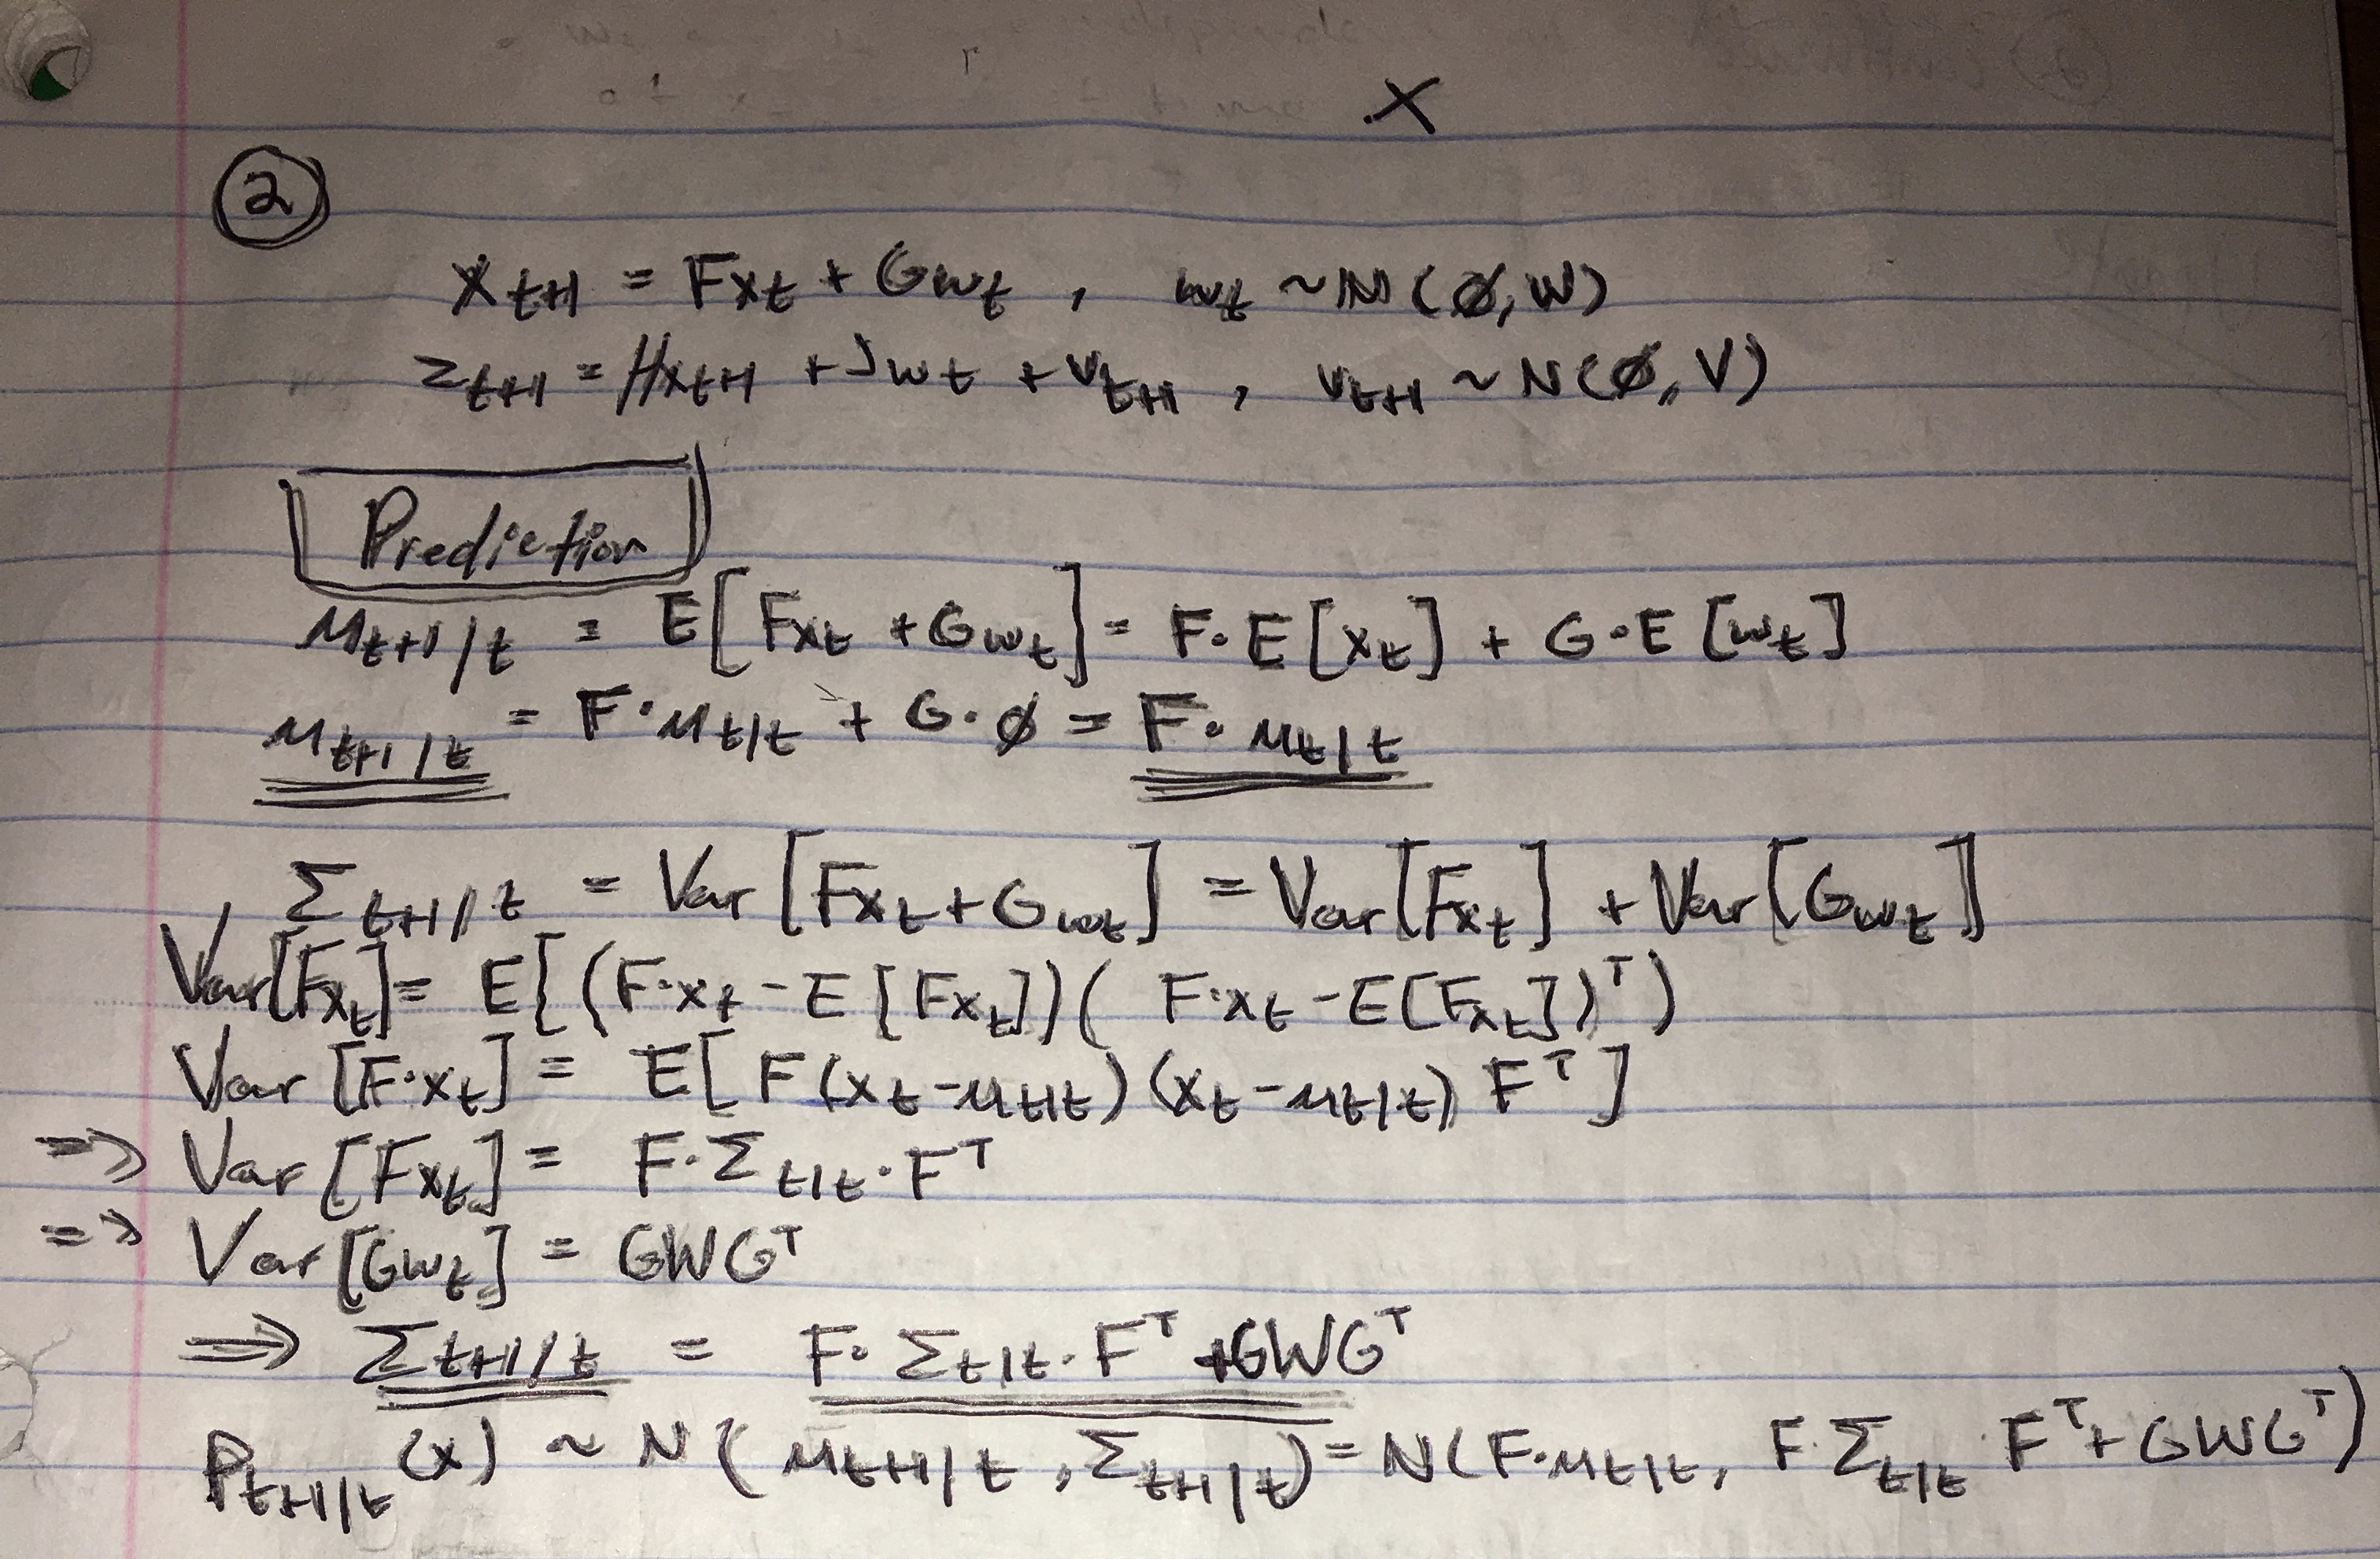 X
②
x_{t+1} = Fx_t + Gw_t , w_t ~ N(∅, W)
z_{t+1} = Hx_{t+1} + Jw_t + v_{t+1} , v_{t+1} ~ N(∅, V)
Prediction
μ_{t+1|t} = E[Fx_t + Gw_t] = F·E[x_t] + G·E[w_t]
μ_{t+1|t} = F·μ_{t|t} + G·∅ = F·μ_{t|t}
Σ_{t+1|t} = Var[Fx_t + Gw_t] = Var[Fx_t] + Var[Gw_t]
Var[Fx_t] = E[(F·x_t - E[Fx_t])(F·x_t - E[Fx_t])^T)
Var[F·x_t] = E[F(x_t - μ_{t|t})(x_t - μ_{t|t})F^T]
=> Var[Fx_t] = F·Σ_{t|t}·F^T
=> Var[Gw_t] = GWG^T
=> Σ_{t+1|t} = F·Σ_{t|t}·F^T + GWG^T
P_{t+1|t}(x) ~ N(μ_{t+1|t}, Σ_{t+1|t}) = N(F·μ_{t|t}, FΣ_{t|t}F^T + GWG^T)